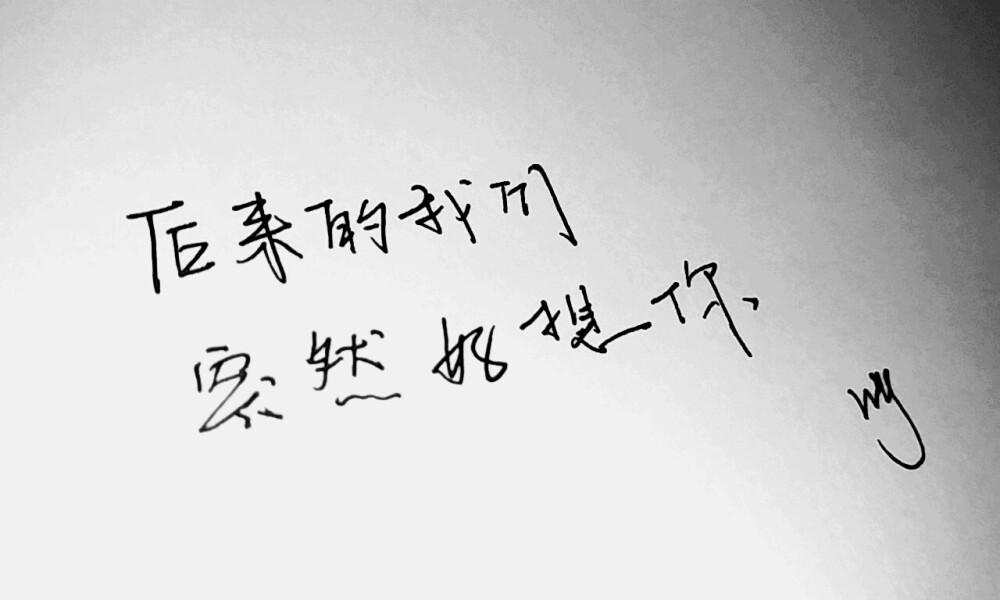 后来的我们
突然好想你
wy